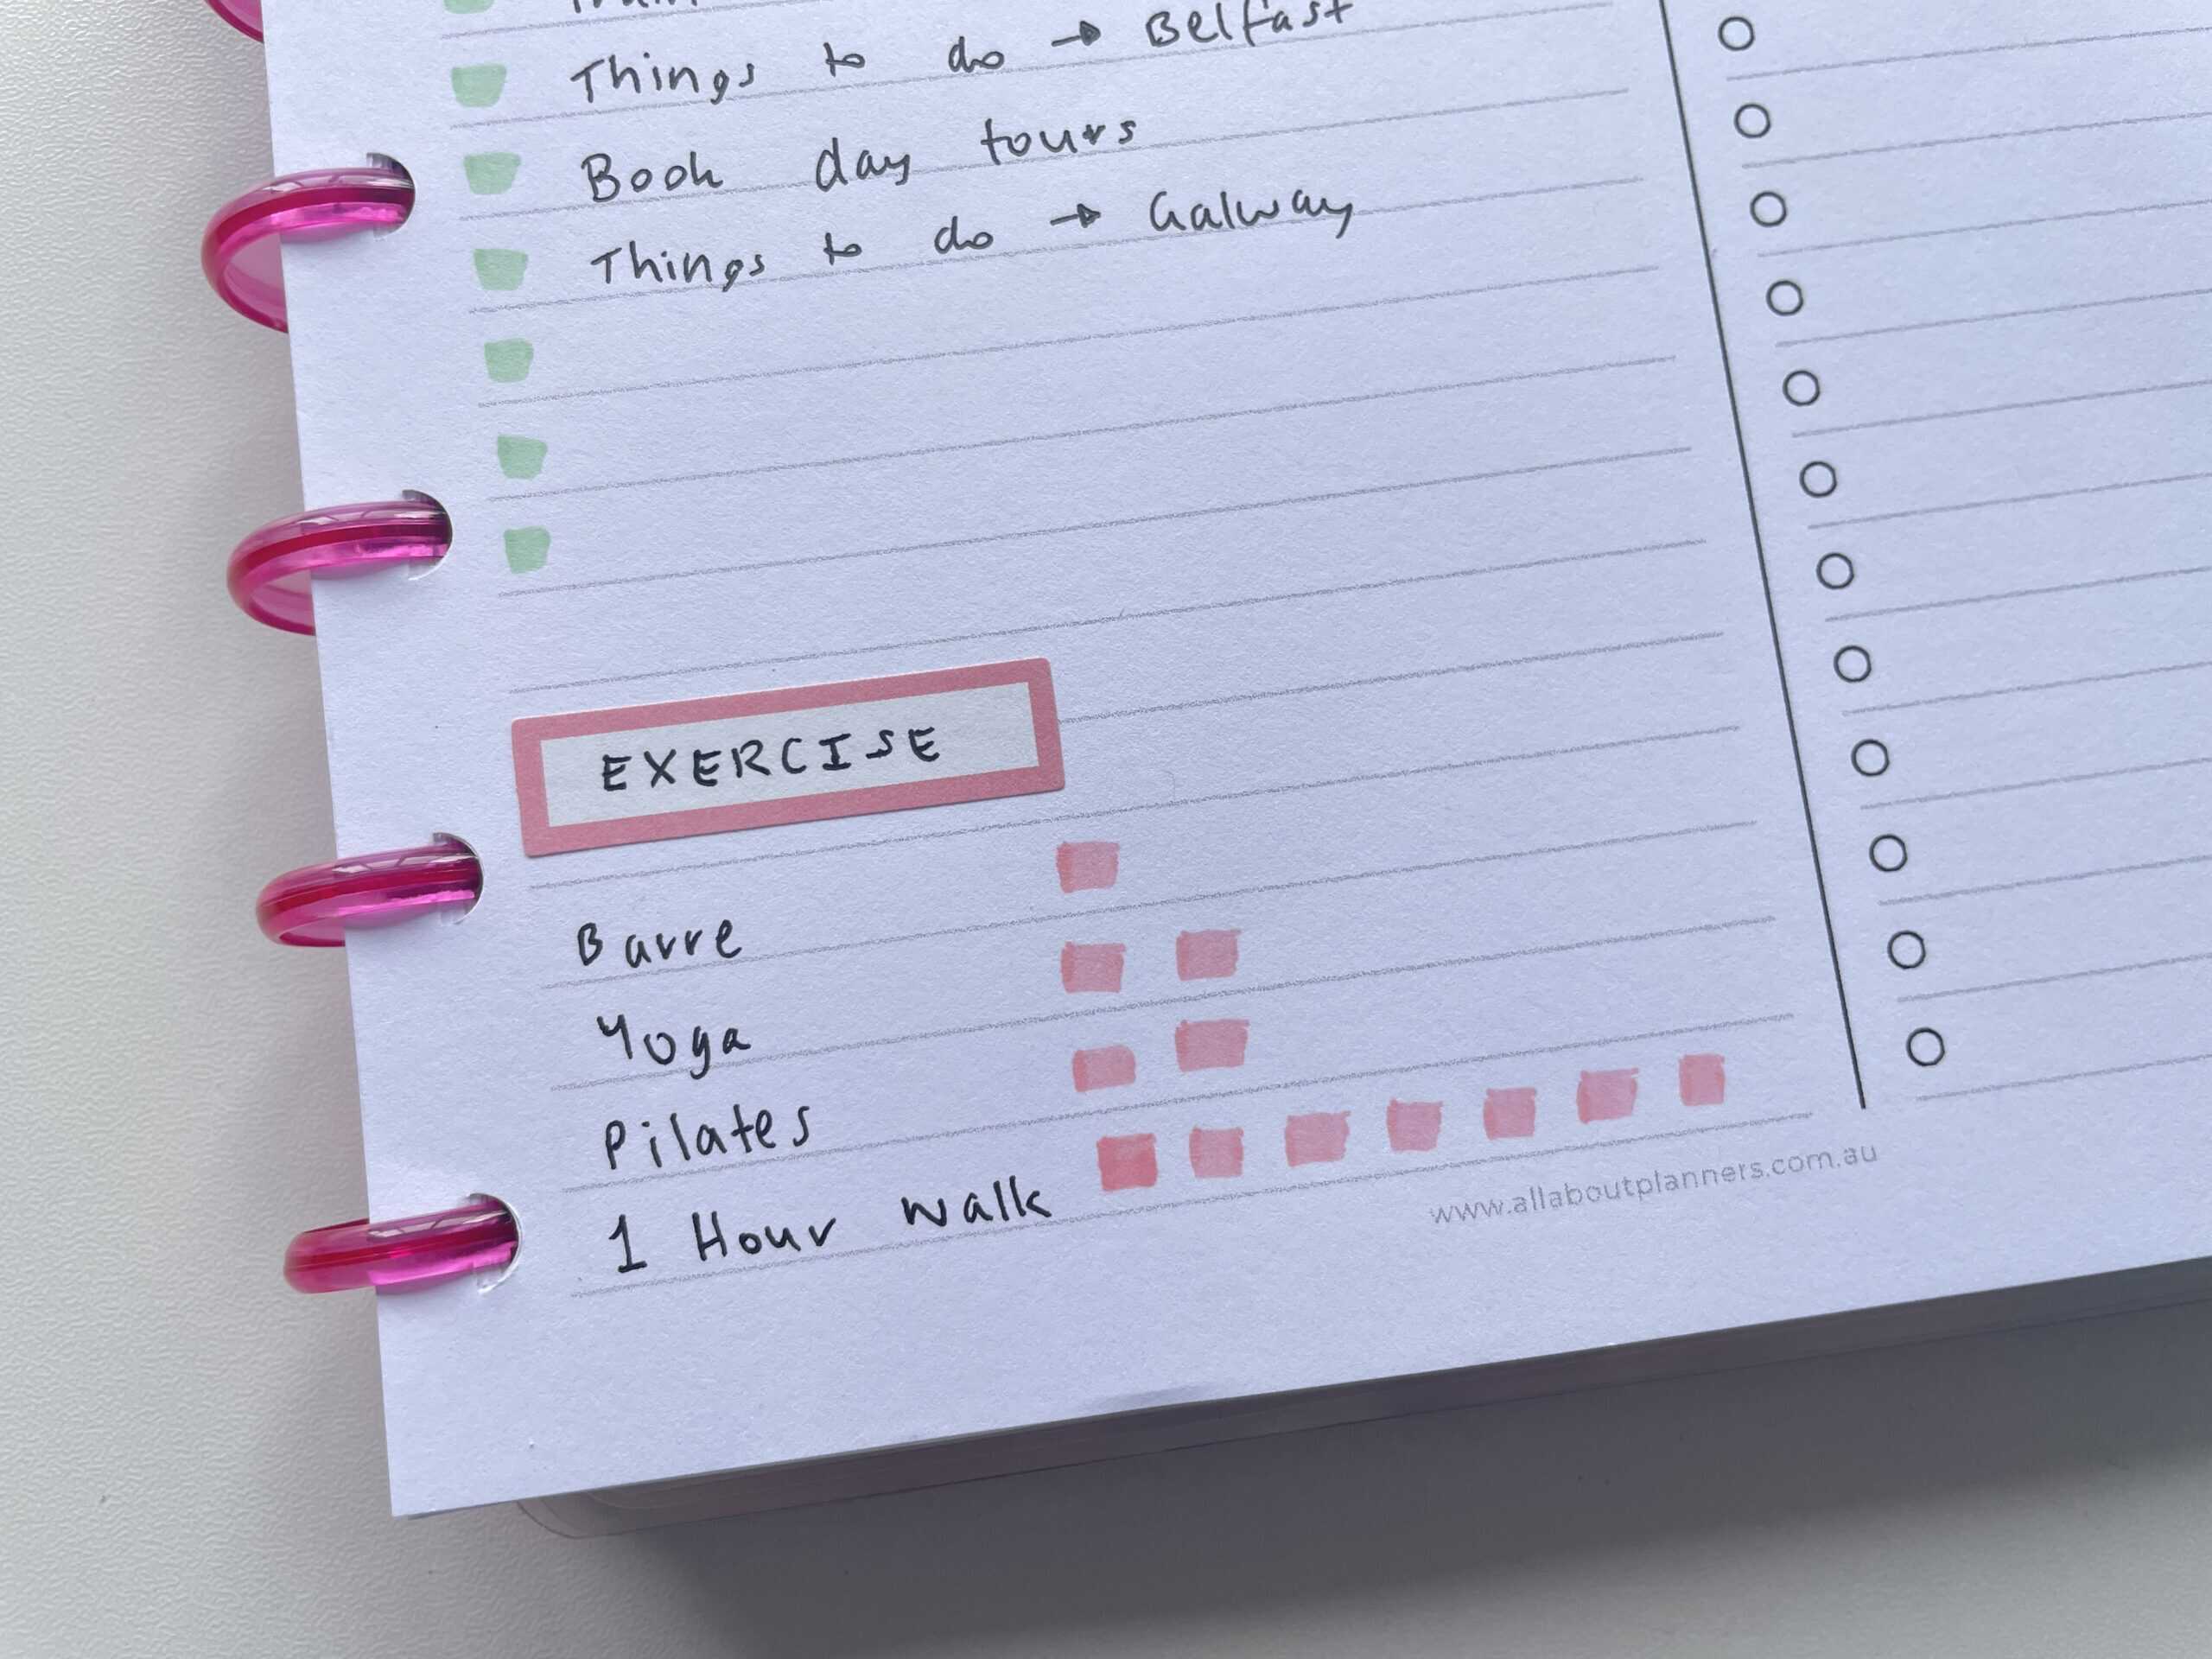 Things to do → Belfast
Book day tours
Things to do → Galway
EXERCISE
Barre
Yoga
Pilates
1 Hour walk
www.allaboutplanners.com.au